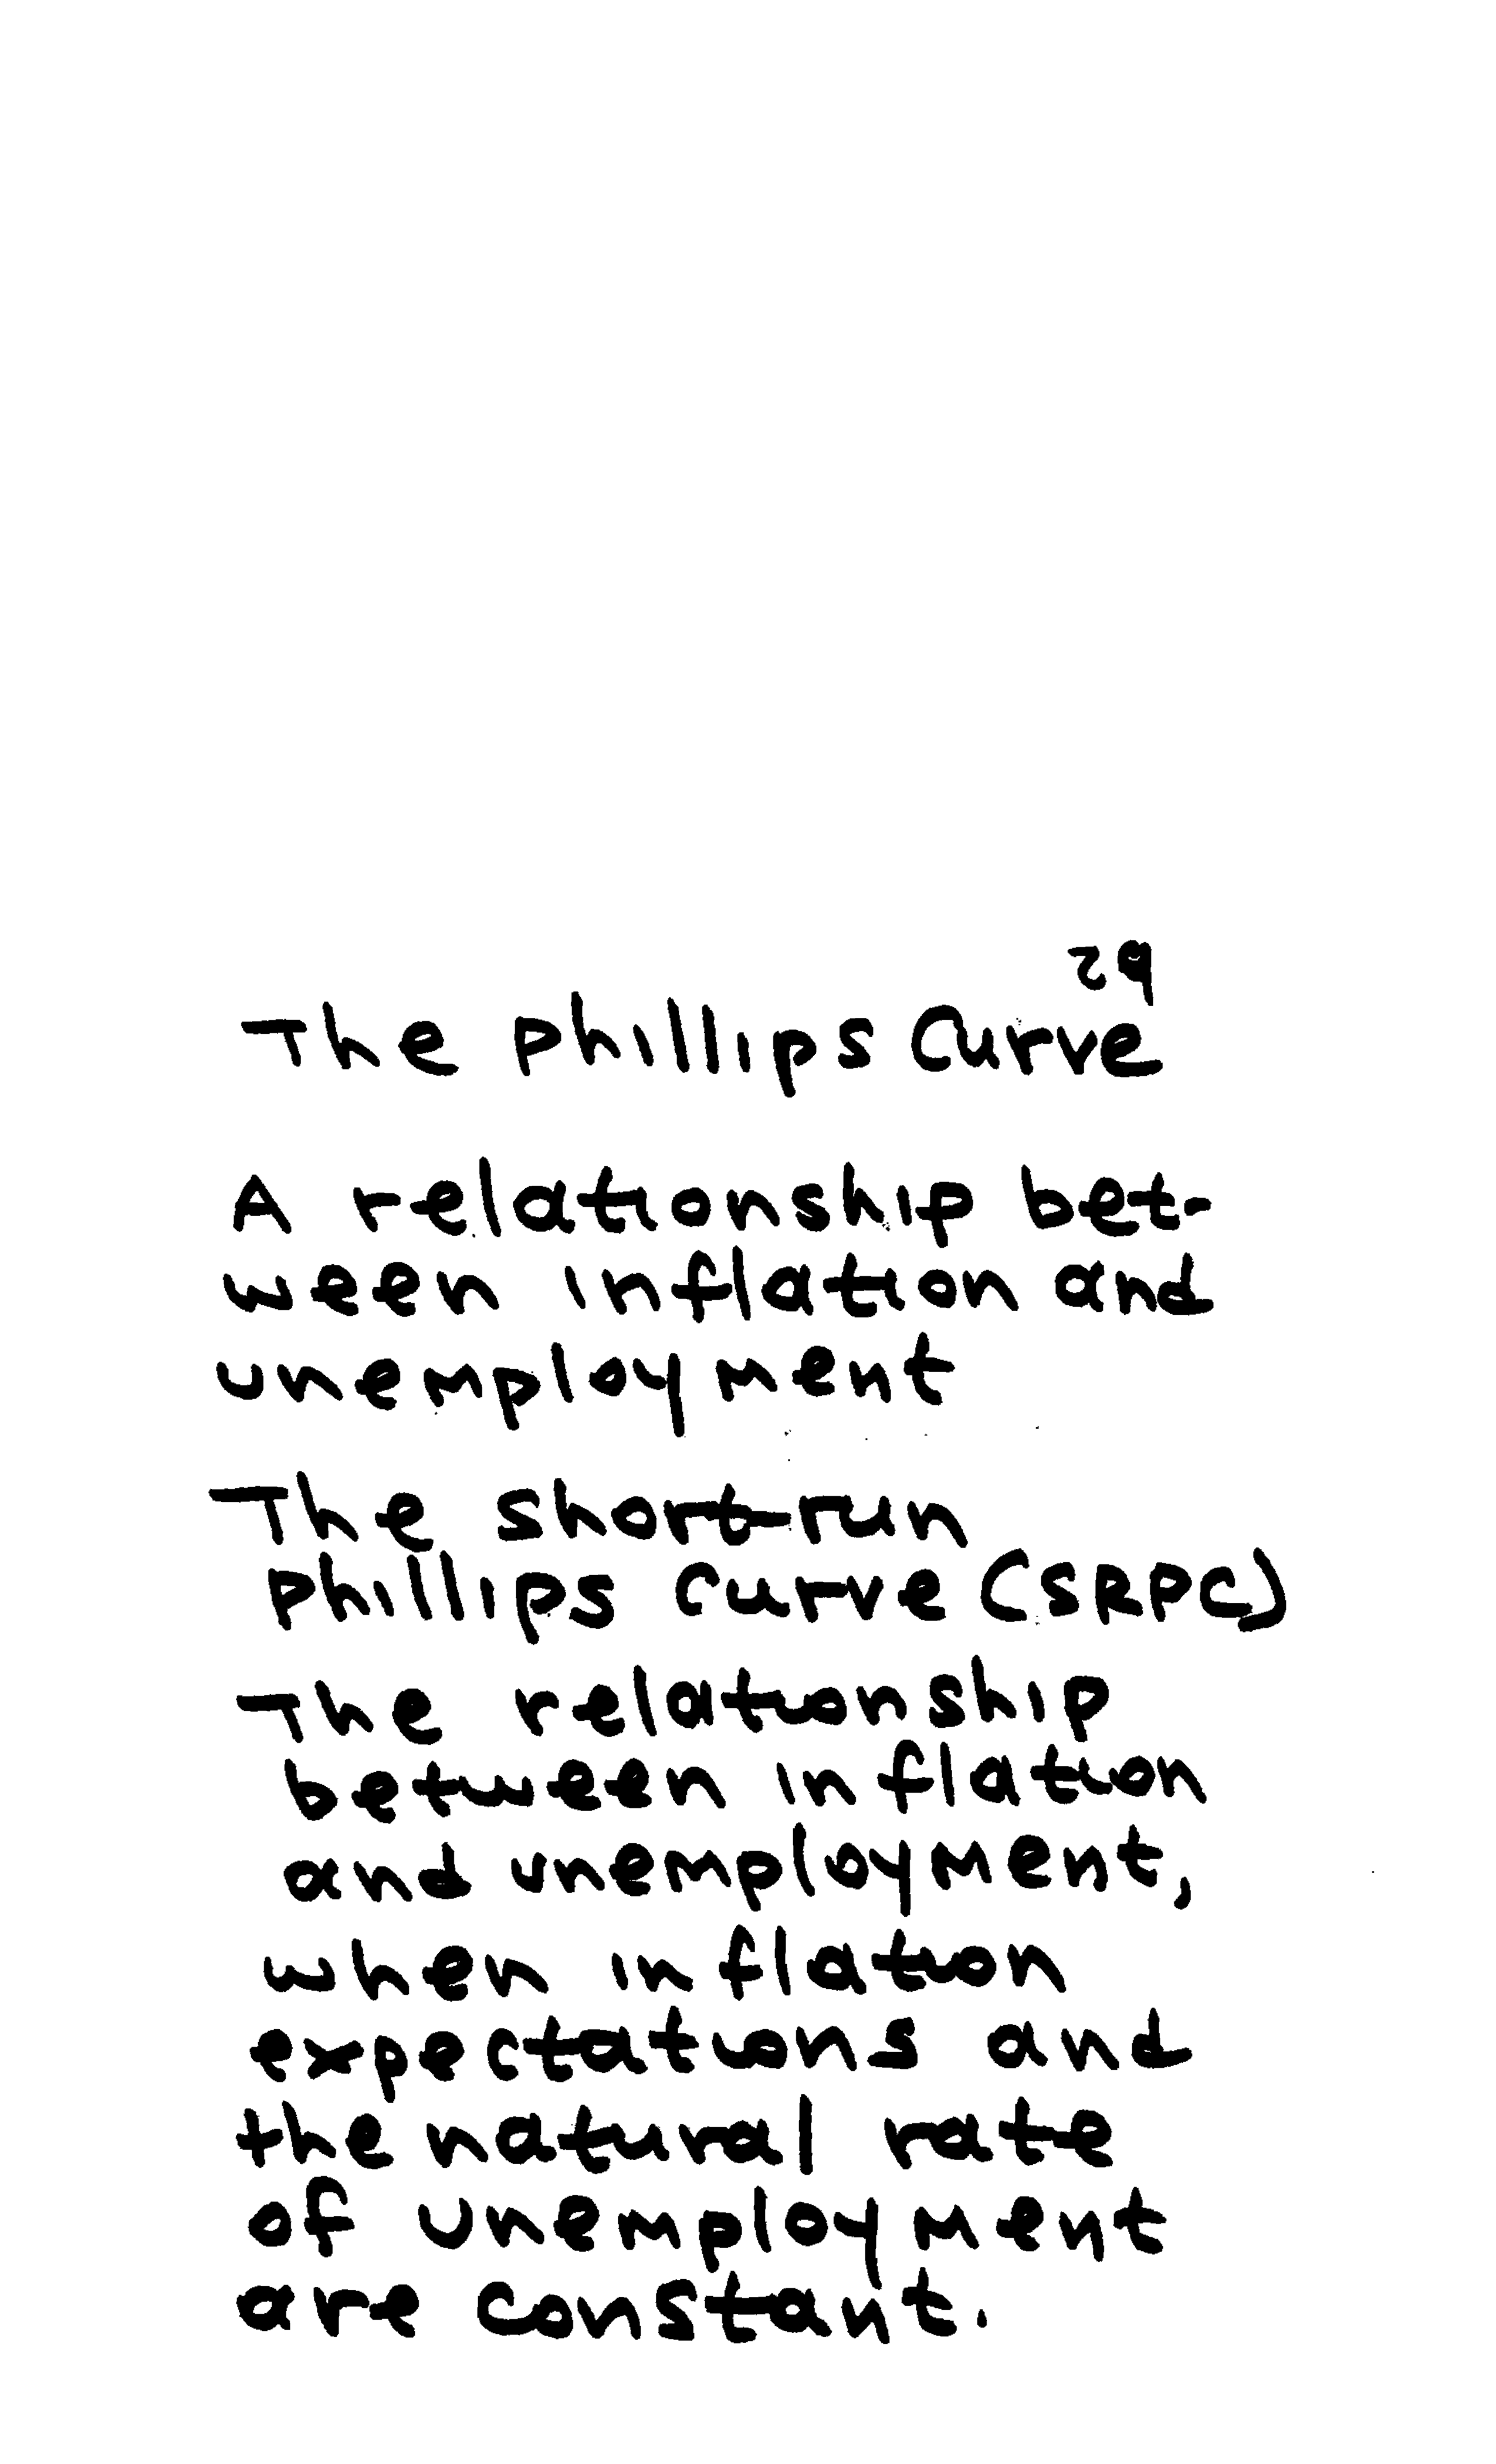 29
The Phillips Curve
A relationship bet-
ween inflation and
unemployment
The short-run
Phillips curve (SRPC)
The relationship
between inflation
and unemployment,
when inflation
expectations and
the natural rate
of unemployment
are constant.